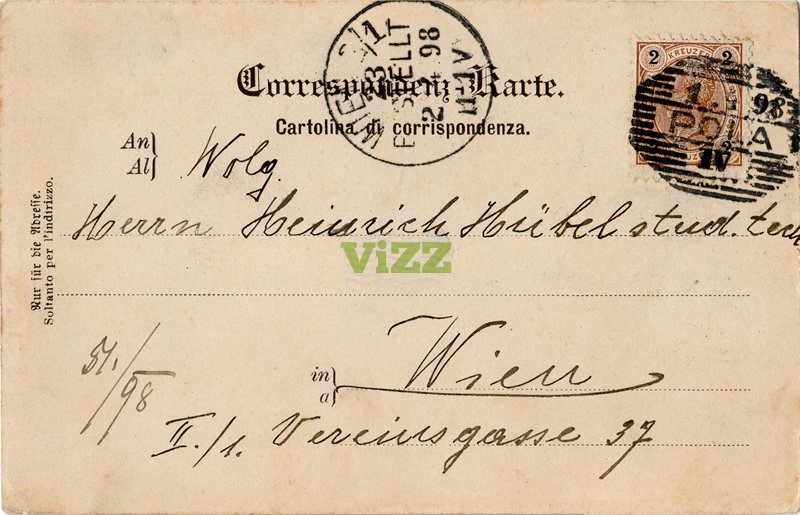 Correspondenz-Karte.
Cartolina di corrispondenza.
2 KREUZER 2
1. 98
POLA
IV
WIEN 2/1
BESTELLT
2. 98
An
Al
Wolg.
Herrn Heinrich Hübel stud. tech
ViZZ
Nur für die Adresse.
Soltanto per l'indirizzo.
in
a
Wien
51./98
II./1. Vereinsgasse 37